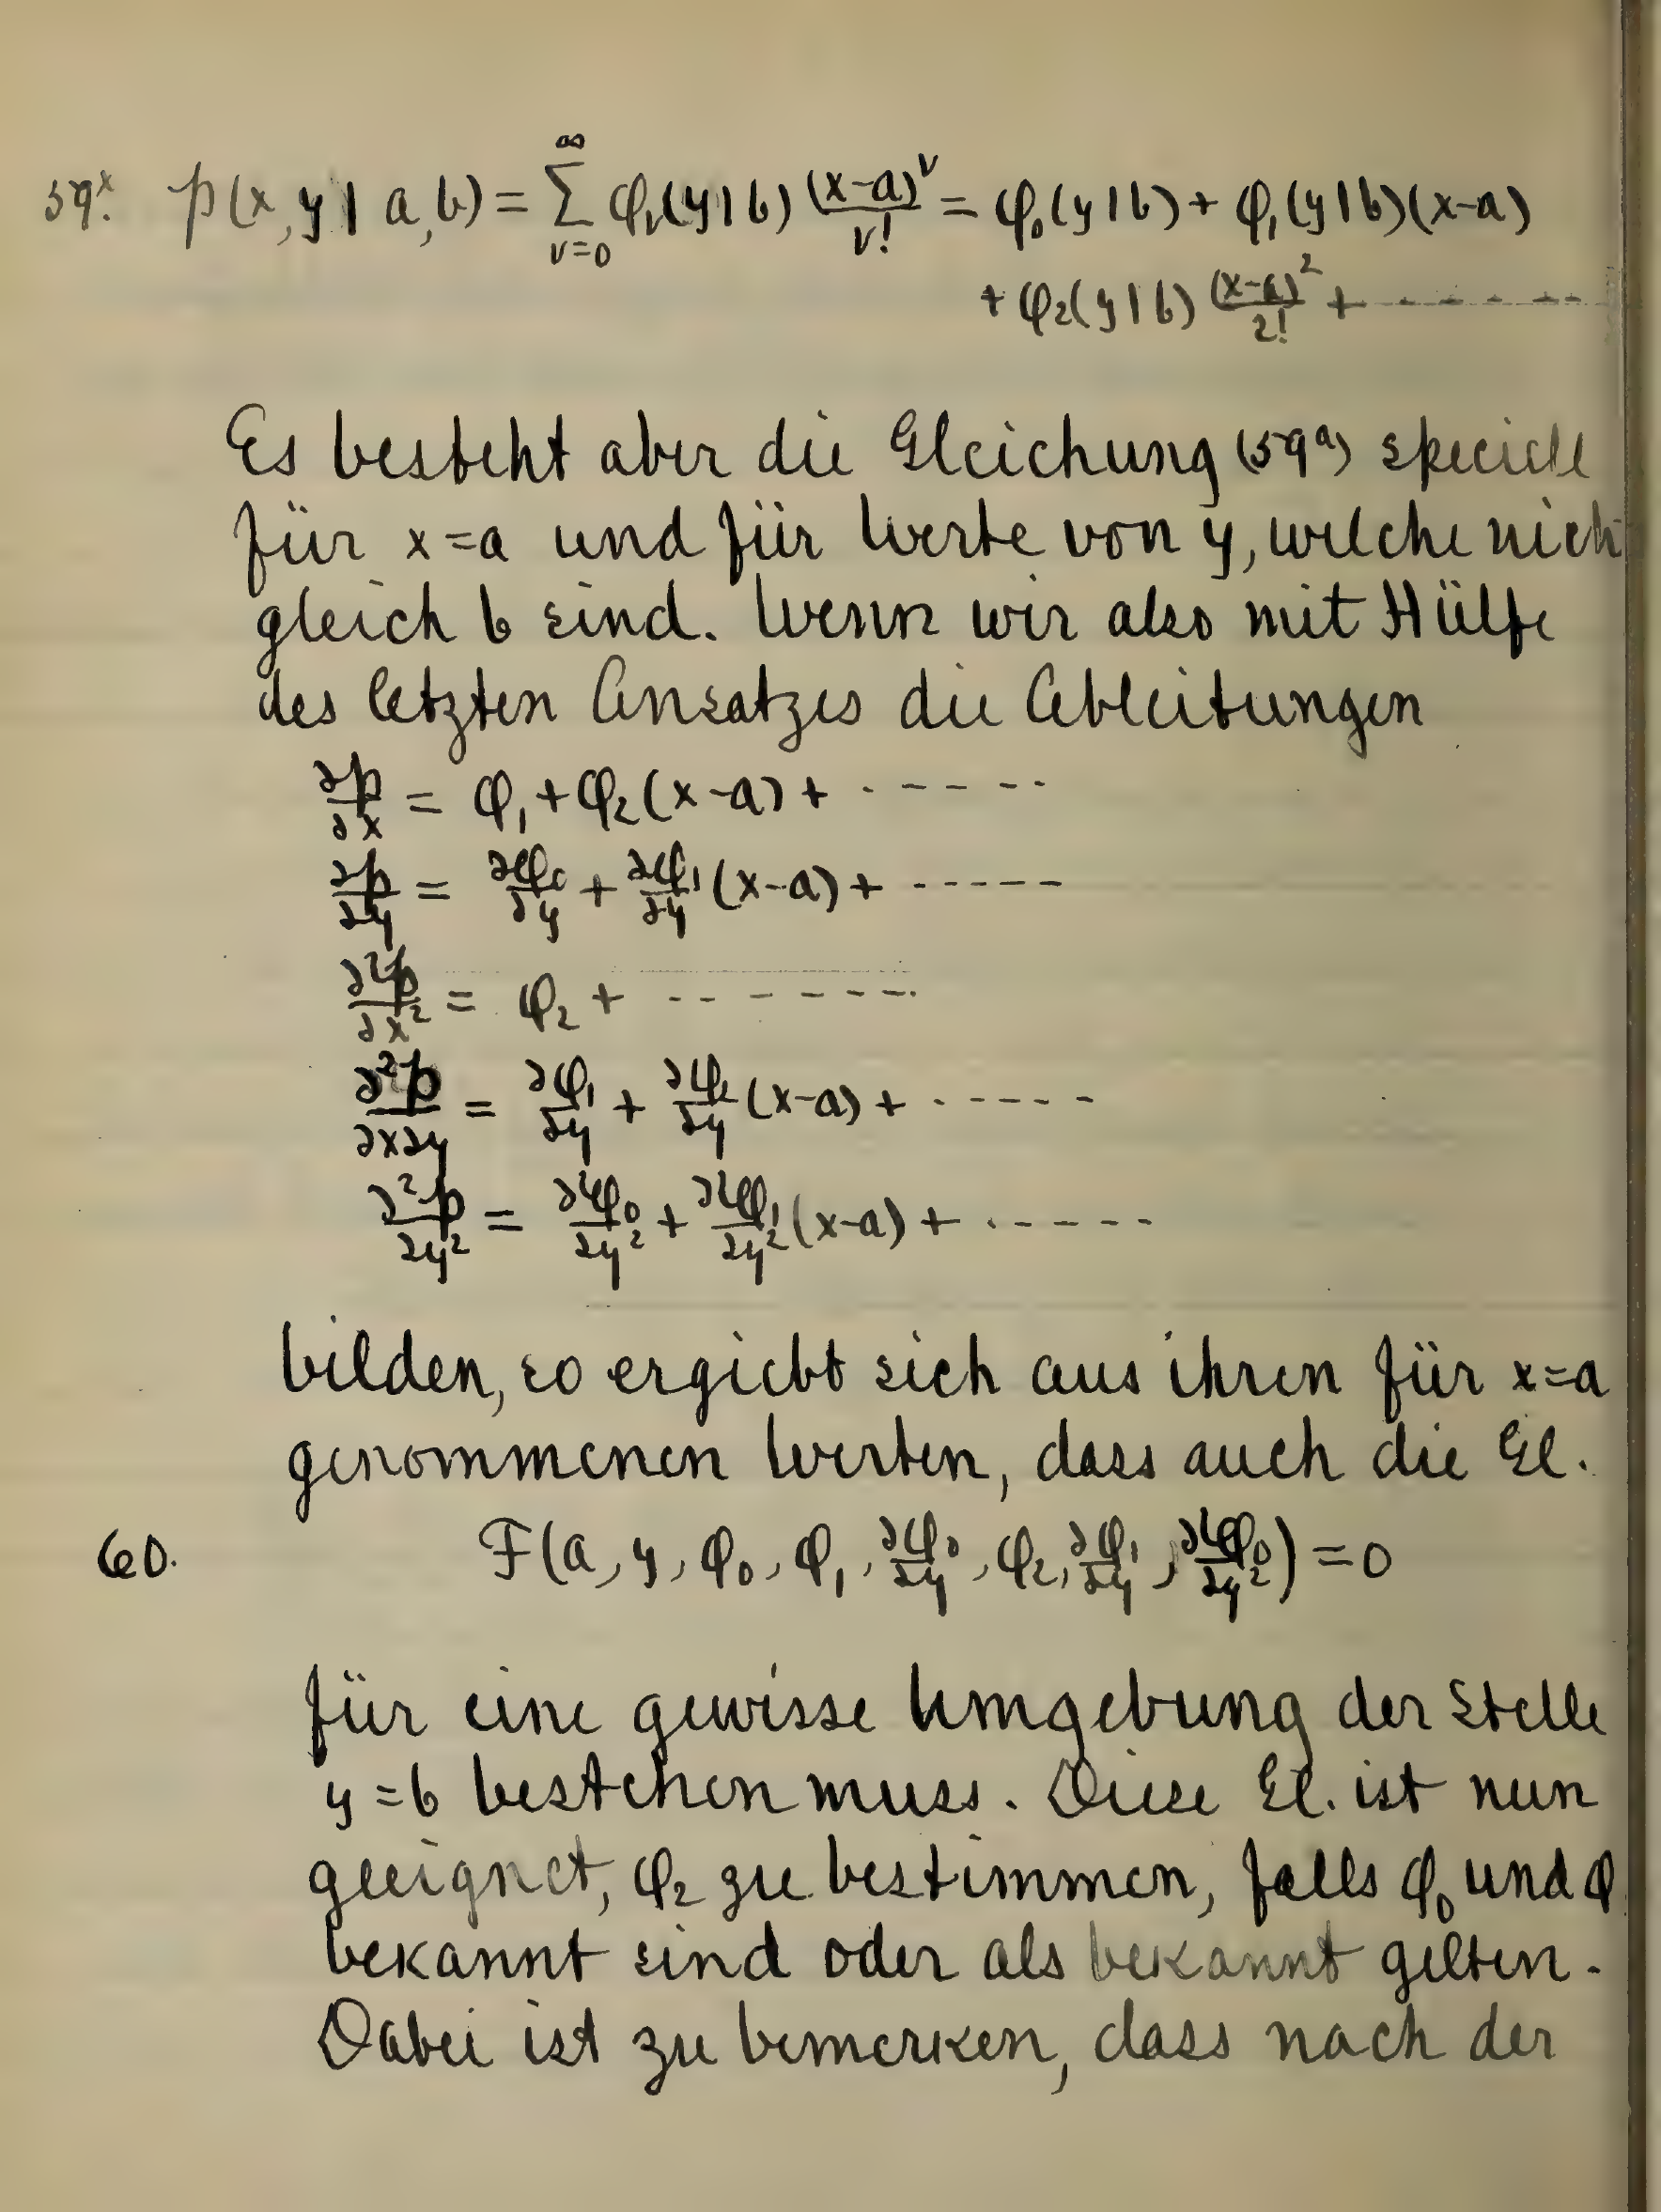 59ˣ. p(x, y | a, b) = ∑_{ν=0}^{∞} φ_ν(y | b) (x-a)^ν/ν! = φ₀(y | b) + φ₁(y | b)(x-a)
+ φ₂(y | b) (x-a)²/2! + - - - - - -
Es besteht aber die Gleichung (59ᵃ) speciell
für x=a und für Werte von y, welche nich
gleich b sind. Wenn wir also mit Hülfe
des letzten Ansatzes die Ableitungen
∂p/∂x = φ₁ + φ₂(x-a) + - - - - -
∂p/∂y = ∂φ₀/∂y + ∂φ₁/∂y (x-a) + - - - - -
∂²p/∂x² = φ₂ + - - - - - - -
∂²p/∂x∂y = ∂φ₁/∂y + ∂φ₂/∂y (x-a) + - - - - -
∂²p/∂y² = ∂²φ₀/∂y² + ∂²φ₁/∂y² (x-a) + - - - - -
bilden, so ergiebt sich aus ihren für x=a
genommenen Werten, dass auch die Gl.
60. F(a, y, φ₀, φ₁, ∂φ₀/∂y, φ₂, ∂φ₁/∂y, ∂²φ₀/∂y²) = 0
für eine gewisse Umgebung der Stelle
y = b bestehen muss. Diese Gl. ist nun
geeignet, φ₂ zu bestimmen, falls φ₀ und φ
bekannt sind oder als bekannt gelten.
Dabei ist zu bemerken, dass nach der